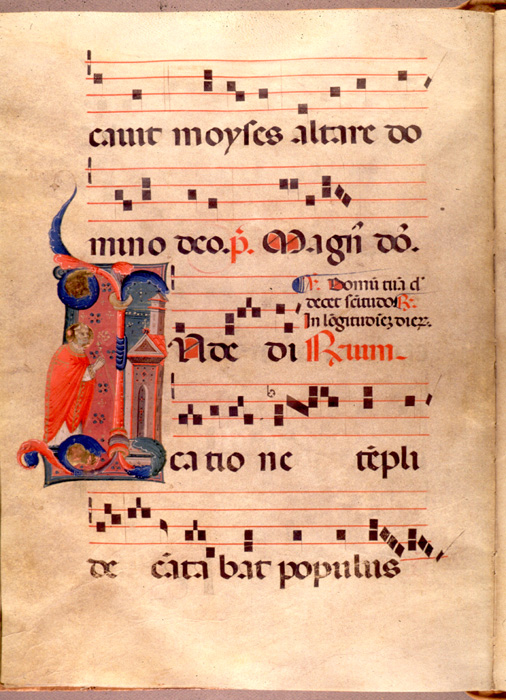 cauit moyses altare do
mino deo. p̄. Magn̄ dō.
℣. Domū tuā d̄
decet sc̄itudo ℟.
In lōgitudinez dier.
IN de di R̄uum.
ca tio ne tēpli
de cāta bat populus